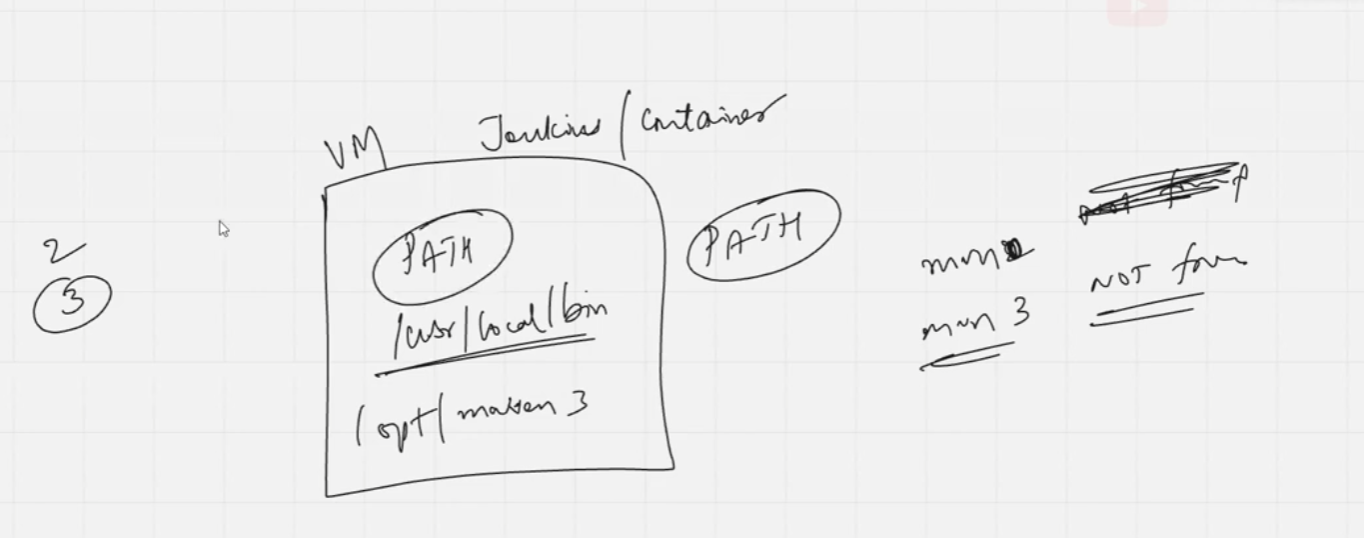 VM
Jenkins / Container
2
3
PATH
/usr/local/bin
/opt/maven 3
PATH
mvn
mvn 3
NOT foun